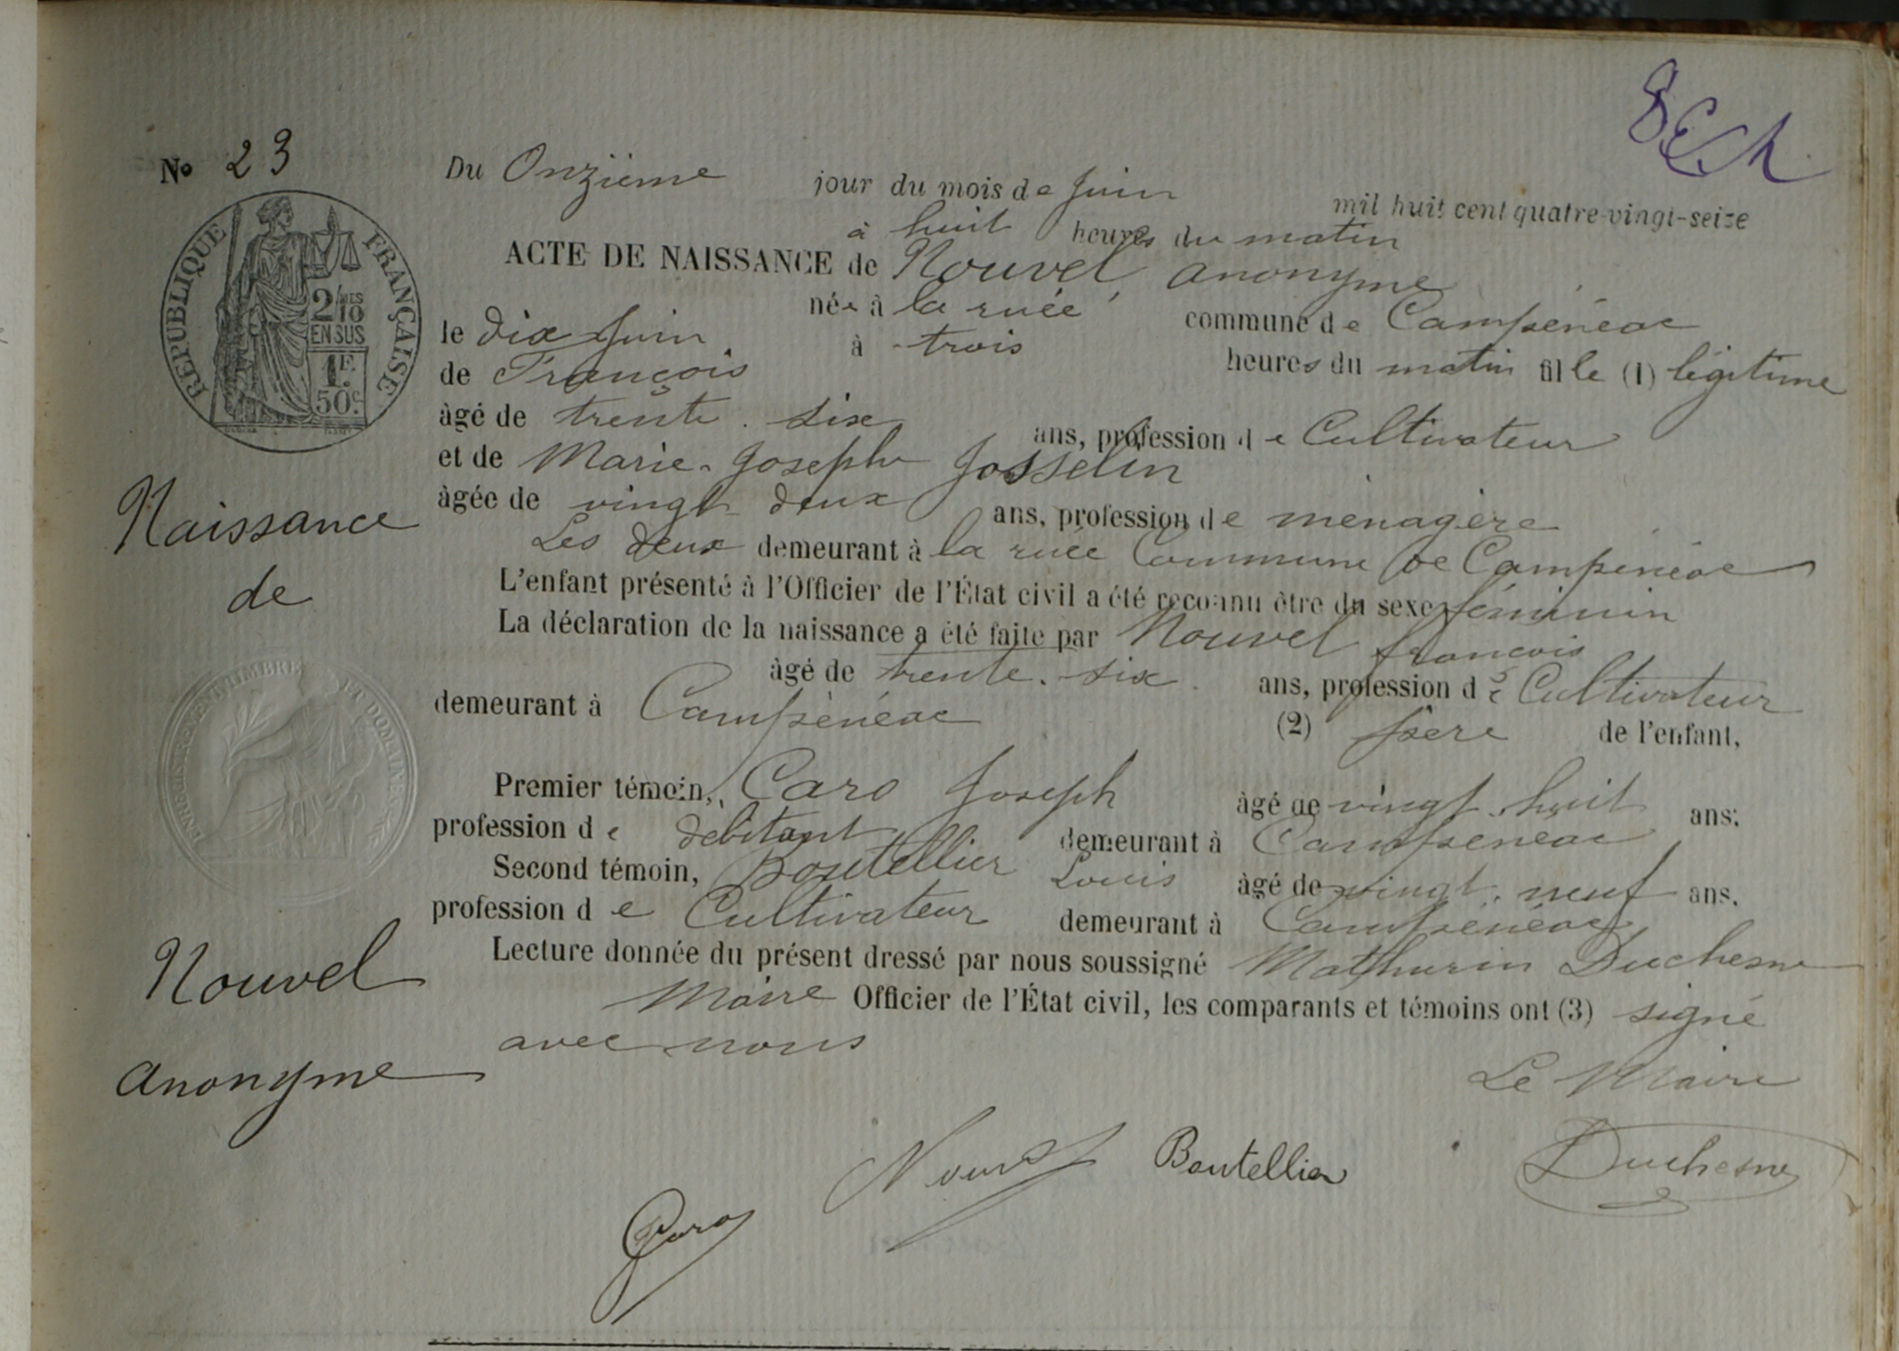 No 23
Du Onzième jour du mois de Juin mil huit cent quatre-vingt-seize
à huit heures du matin
ACTE DE NAISSANCE de Nouvel anonyme
née à la ruée commune de Campénéac
le dix Juin à trois heures du matin fille (1) légitime
de François
âgé de trente-six ans, profession de Cultivateur
et de Marie-Josephe Josselin
âgée de vingt deux ans, profession de ménagère
Les deux demeurant à la ruée Commune de Campénéac
L'enfant présenté à l'Officier de l'État civil a été reconnu être du sexe féminin
La déclaration de la naissance a été faite par Nouvel françois
âgé de trente-six ans, profession de Cultivateur
demeurant à Campénéac (2) père de l'enfant,
Premier témoin, Caro Joseph âgé de vingt-huit ans.
profession de débitant demeurant à Campénéac
Second témoin, Boutellier Louis âgé de vingt-neuf ans.
profession de Cultivateur demeurant à Campénéac
Lecture donnée du présent dressé par nous soussigné Mathurin Duchesne
Maire Officier de l'État civil, les comparants et témoins ont (3) signé
avec nous
Le Maire
Nouvel Boutellier Duchesne
Caro
RÉPUBLIQUE FRANÇAISE
2/10MES
EN SUS
1F.
50c
Naissance
de
Nouvel
anonyme